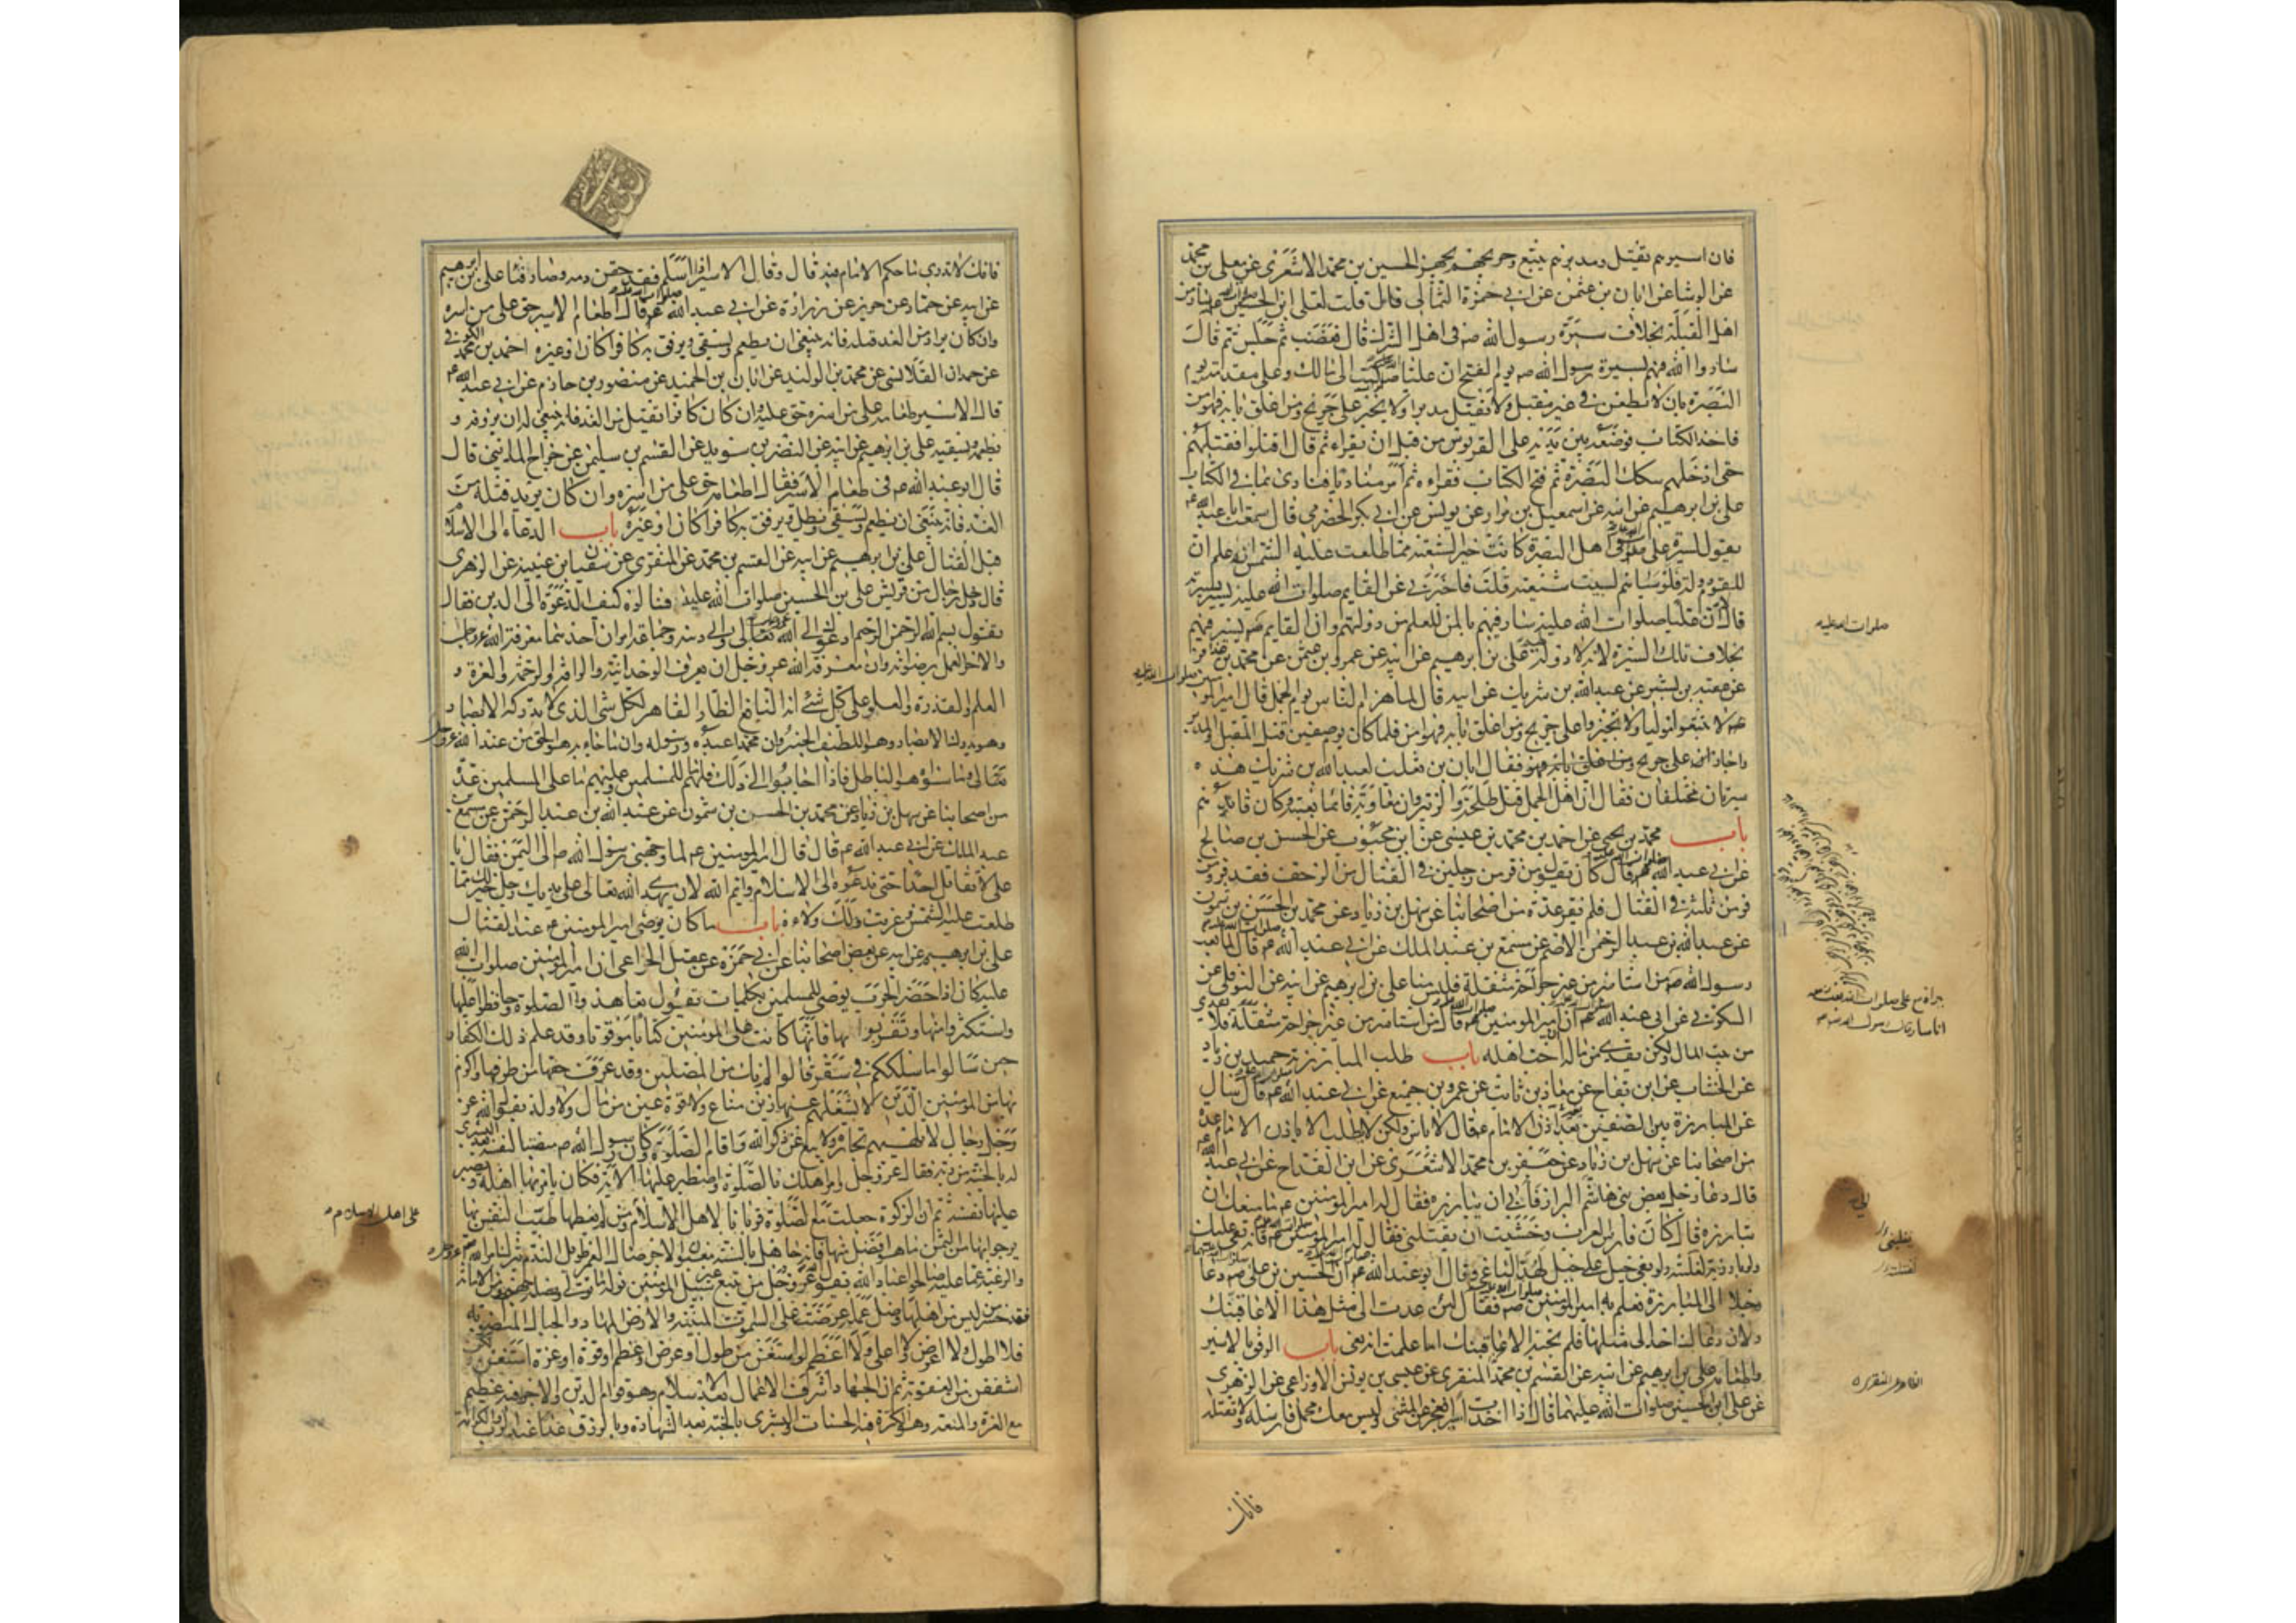 فان اسيرهم يقتل ومدبرهم يتبع وجريحهم يجهز الحسين بن محمد الاشعري عن معلى بن محمد
عن الوشا عن ابان بن عثمن عن ابي حمزة الثمالي قال قلت لعلى بن الحسين
اهل القبلة بخلاف سيرة رسول الله ص في اهل الشرك قال فغضب ثم جلس ثم قال
سار والله فيهم بسيرة رسول الله ص يوم الفتح ان عليا كتب الى مالك وهو على مقدمته يوم
البصرة بان لا يطعن في غير مقبل ولا يقتل مدبرا ولا يجيز على جريح ومن اغلق بابه فهو امن
فاخذ الكتاب فوضعه بين يديه على القربوس من قبل ان يقراه ثم قال اقتلوا فقتلهم
حتى ادخلهم سكك البصرة ثم فتح الكتاب فقراه ثم امر مناديا فنادى بما في الكتاب
على بن ابرهيم عن ابيه عن اسمعيل بن مرار عن يونس عن ابي بكر الحضرمي قال سمعت ابا عبد الله ع
يقول لسيرة على في اهل البصرة كانت خيرا لشيعته مما طلعت عليه الشمس انه علم ان
للقوم دولة فلو سباهم لسبيت شيعته قلت فاخبرني عن القايم صلوات الله عليه يسير بسيرته
قال لا ان عليا صلوات الله عليه سار فيهم بالمن للعلم من دولتهم وان القايم يسير فيهم
بخلاف تلك السيرة لانه لا دولة لهم على بن ابرهيم عن ابيه عن عمرو بن عثمن عن محمد بن عذافر
عن عقبه بن بشير عن عبد الله بن شريك عن ابيه قال لما هزم الناس يوم الجمل قال امير المو
منين صلوات الله عليه
لا تتبعوا موليا ولا تجيزوا على جريح ومن اغلق بابه فهو امن فلما كان يوم صفين قتل المقبل والمدبر
واجاز على جريح فقال ابان بن تغلب لعبد الله بن شريك هذه
سيرتان مختلفتان فقال ان اهل الجمل قتل طلحة والزبير وان معاوية كان قائما بعينه وكان قائدهم
باب محمد بن يحيى عن احمد بن محمد بن عيسى عن ابن محبوب عن الحسن بن صالح
عن ابي عبد الله قال كان يقول من فر من رجلين في القتال من الزحف فقد فر ومن
فر من ثلثة في القتال فلم يفر عدة من اصحابنا عن سهل بن زياد عن محمد بن الحسن بن شمون
عن عبد الله بن عبد الرحمن الاصم عن مسمع بن عبد الملك عن ابي عبد الله ع قال لما بعث
رسول الله ص من استاسر من غير جراحة مثقلة فليس منا على بن ابرهيم عن ابيه عن النوفلي عن
السكوني عن ابي عبد الله ان امير المومنين قال من استاسر من غير جراحة مثقلة فلا يفدي
من بيت المال ولكن يفدى من ماله ان احب اهله باب طلب المبارزة حميد بن زياد
عن الخشاب عن ابن بقاح عن معاذ بن ثابت عن عمرو بن جميع عن ابي عبد الله قال سال
عن المبارزة بين الصفين بعد اذن الامام فقال لا باس ولكن لا يطلب الا باذن الامام عدة
من اصحابنا عن سهل بن زياد عن جعفر بن محمد الاشعري عن ابن القداح عن ابي عبد الله ع
قال دعا رجل بعض بني هاشم الى البراز فابى ان يبارزه فقال له امير المومنين ع ما منعك ان
تبارزه قال كان فارس العرب وخشيت ان يقتلني فقال له امير المومنين فانه بغى عليك
ولو بارزته لغلبته ولو بغى جبل على جبل لهد الباغي وقال ابو عبد الله ان الحسين بن على دعا
رجلا الى المبارزة فعلم به امير المومنين فقال لئن عدت الى مثل هذا لاعاقبنك
ولان دعاك احد الى مثلها فلم تجبه لاعاقبنك اما علمت انه بغى باب الرفق بالاسير
واطعامه على بن ابرهيم عن ابيه عن القسم بن محمد المنقري عن عيسى بن يونس الاوزاعي عن الزهري
عن على بن الحسين صلوات الله عليهما قال اذا اخذت اسيرا فعجز عن المشي وليس معك محمل فارسله ولا تقتله
فانك
صلوات الله عليه
فانك لا تدري ما حكم الامام فيه قال وقال الاسير اذا اسلم فقد حقن دمه وصار فيئا على بن ابرهيم
عن ابيه عن حماد عن حريز عن زرارة عن ابي عبد الله قال اطعام الاسير حق على من اسره
وان كان يراد من الغد قتله فانه ينبغي ان يطعم ويسقى ويرفق به كافرا كان او غيره احمد بن محمد الكوفي
عن حمدان القلانسي عن محمد بن الوليد عن ابان بن عن منصور بن حازم عن ابي عبد الله ع
قال الاسير طعامه على من اسره حق عليه وان كان كافرا يقتل من الغد فانه ينبغي له ان يروفه و
يطعمه ويسقيه على بن ابرهيم عن ابيه عن النضر بن سويد عن القسم بن سليمن عن جراح المدايني قال
قال ابو عبد الله ع في طعام الاسير فقال اطعامه حق على من اسره وان كان يريد قتله من
الغد فانه ينبغي ان يطعم ويسقى ويظل ويرفق به كافرا كان او غيره باب الدعاء الى الاسلا
قبل القتال على بن ابرهيم عن ابيه عن القسم بن محمد عن المنقري عن سفيان بن عيينه عن الزهري
قال دخل رجال من قريش على على بن الحسين صلوات الله عليه فسالوه كيف الدعوة الى الدين فقال
يقول بسم الله الرحمن الرحيم ادعوك الى الله تعالى والى دينه وجماعه امران احدهما معرفة الله عز وجل
والاخر العمل برضوانه وان معرفة الله عز وجل ان يعرف بالوحدانية والرافة والرحمة والعزة و
العلم والقدرة والعلو على كل شئ وانه النافع الضار القاهر لكل شئ الذي لا تدركه الابصار
وهو يدرك الابصار وهو اللطيف الخبير وان محمدا عبده ورسوله وان ما جاء به هو الحق من عند الله عز وجل
تعالى وما سواه هو الباطل فاذا اجابوا الى ذلك فلهم ما للمسلمين وعليهم ما على المسلمين عدة
من اصحابنا عن سهل بن زياد عن محمد بن الحسن بن شمون عن عبد الله بن عبد الرحمن عن مسمع بن
عبد الملك عن ابي عبد الله ع قال قال امير المومنين ع لما وجهني رسول الله ص الى اليمن فقال يا
على لا تقاتل احدا حتى تدعوه الى الاسلام وايم الله لان يهدي الله تعالى على يديك رجلا خير لك مما
طلعت عليه الشمس وغربت ولك ولاءه باب ما كان يوصى امير المومنين ع عند القتال
على بن ابرهيم عن ابيه عن بعض اصحابنا عن ابي حمزة عن عقيل الخزاعي ان امير المومنين صلوات الله
عليه كان اذا حضر الحرب يوصي للمسلمين بكلمات يقول تعاهدوا الصلوة وحافظوا عليها
واستكثروا منها وتقربوا بها فانها كانت على المومنين كتابا موقوتا وقد علم ذلك الكفار
حين سالوا ما سلككم في سقر قالوا لم نك من المصلين وقد عرف حقها من طرقها واكرم
بها من المومنين الذين لا يشغلهم عنها زين متاع ولا قرة عين من مال ولا ولد يقول الله عز
وجل رجال لا تلهيهم تجارة ولا بيع عن ذكر الله واقام الصلوة وكان رسول الله ص منصبا لنفسه
له بالجنة من ربه فقال عز وجل وامر اهلك بالصلوة واصطبر عليها الاية فكان يامر بها اهله ويصبر
عليها نفسه ثم ان الزكوة جعلت مع الصلوة قربانا لاهل الاسلام ومن لم يعطها طيب النفس بها
يرجو بها من الثمن ما هو افضل منها فانه جاهل بالسنة مغبون الاجر ضال العمر طويل الندم بترك امر الله عز وجل
والرغبة عما عليه صالحوا عباد الله يقول عز وجل من يتبع غير سبيل المومنين نوله ما تولى من الامانة
فقد خسر من ليس من اهلها وضل عمله عرضت على السموات المبنيه والارض المهاد والجبال المنصوبه
فلا اطول ولا اعرض ولا اعلى ولا اعظم لو امتنعن من طول او عرض او عظم او قوة او عزة امتنعن
اشفقن من العقوبة ثم ان الجهاد اشرف الاعمال بعد الاسلام وهو قوام الدين والاجر فيه عظيم
مع العزة والمنعه وهو الكرة فيه الحسنات والبشرى بالجنة بعد الشهادة وبالرزق غدا عند الرب والكرامة
على اهل الاسلام